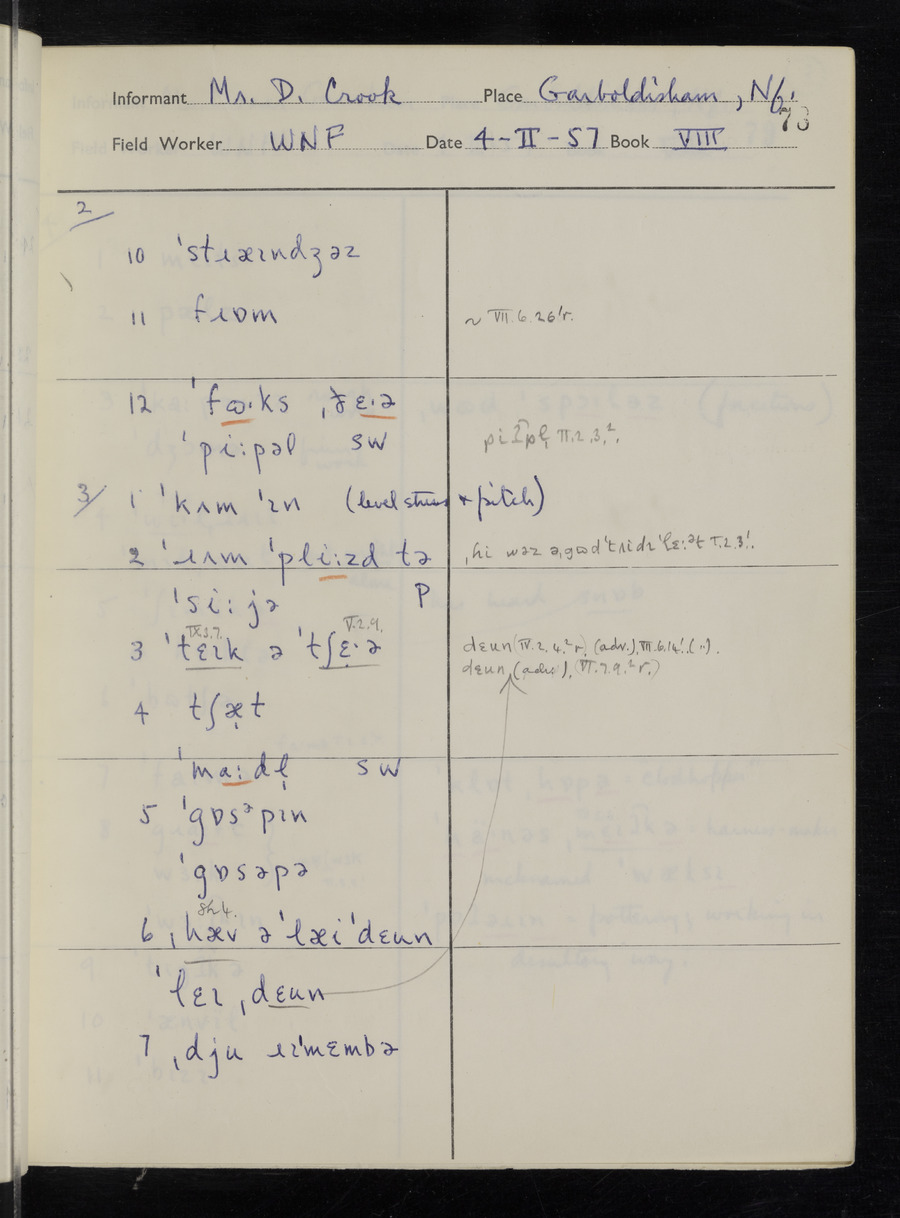 Informant Mr. D. Crook Place Garboldisham, Nf.
73
Field Worker WNF Date 4-II-57 Book VIII
2/
10 ˈstɹæɪndʒəz
11 fɹɒm ~ VII.6.26'r.
12 ˈfɷ·ks ˌðɛ·ə
ˈpi:pəl SW II.2.3,².
3/ 1 ˈkʌm ˈɪn (level stress + pitch)
2 ˈɹʌm ˈpli:zd tə ˌhi wəz
ˈsi: jə P
IX.3.7. V.2.9.
3 ˈtɛɪk ə ˈtʃɛ·ə dɛun (IV.2.4,²r), (adv.), VII.6.14'.(").
dɛun (adv.), (VI.7.9,²r.)
4 tʃæ̣t
ˈma:dl̩ SW
5 ˈgɒsᵊpɪn
ˈgɒsəpə
6 ˌhæv ə ˈlæi ˈdɛun
ˈlɛɪ ˌdɛun
7 ˌdju ɹɪˈmɛmbə